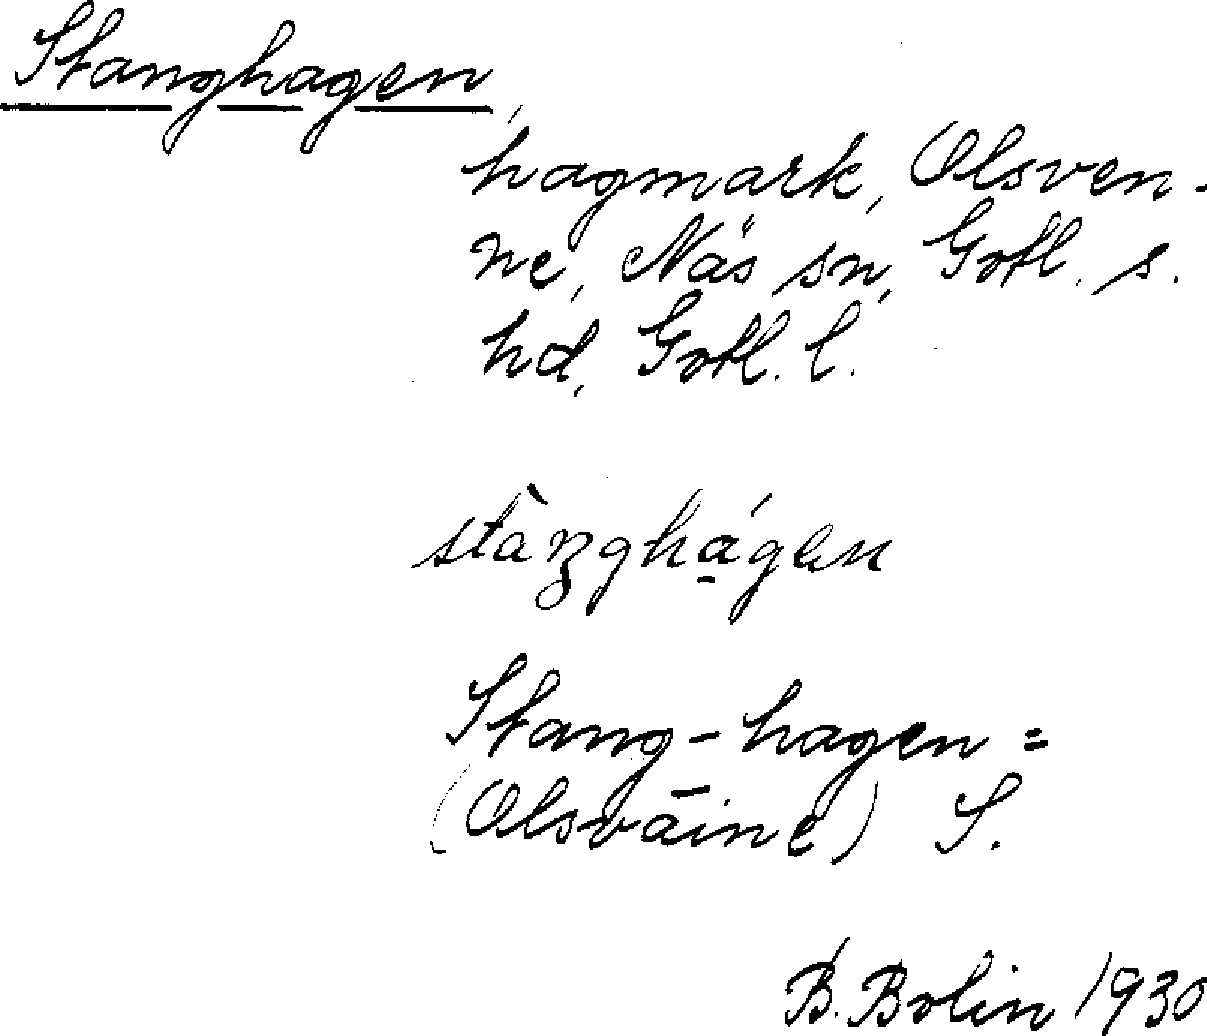 Stanghagen,
hagmark, Olsven-
ne, Näs sn, Gotl. s.
hd, Gotl. l.
stàŋghá̱gen
Stang-hagen =
(Olsvāine) S.
B. Bolin 1930